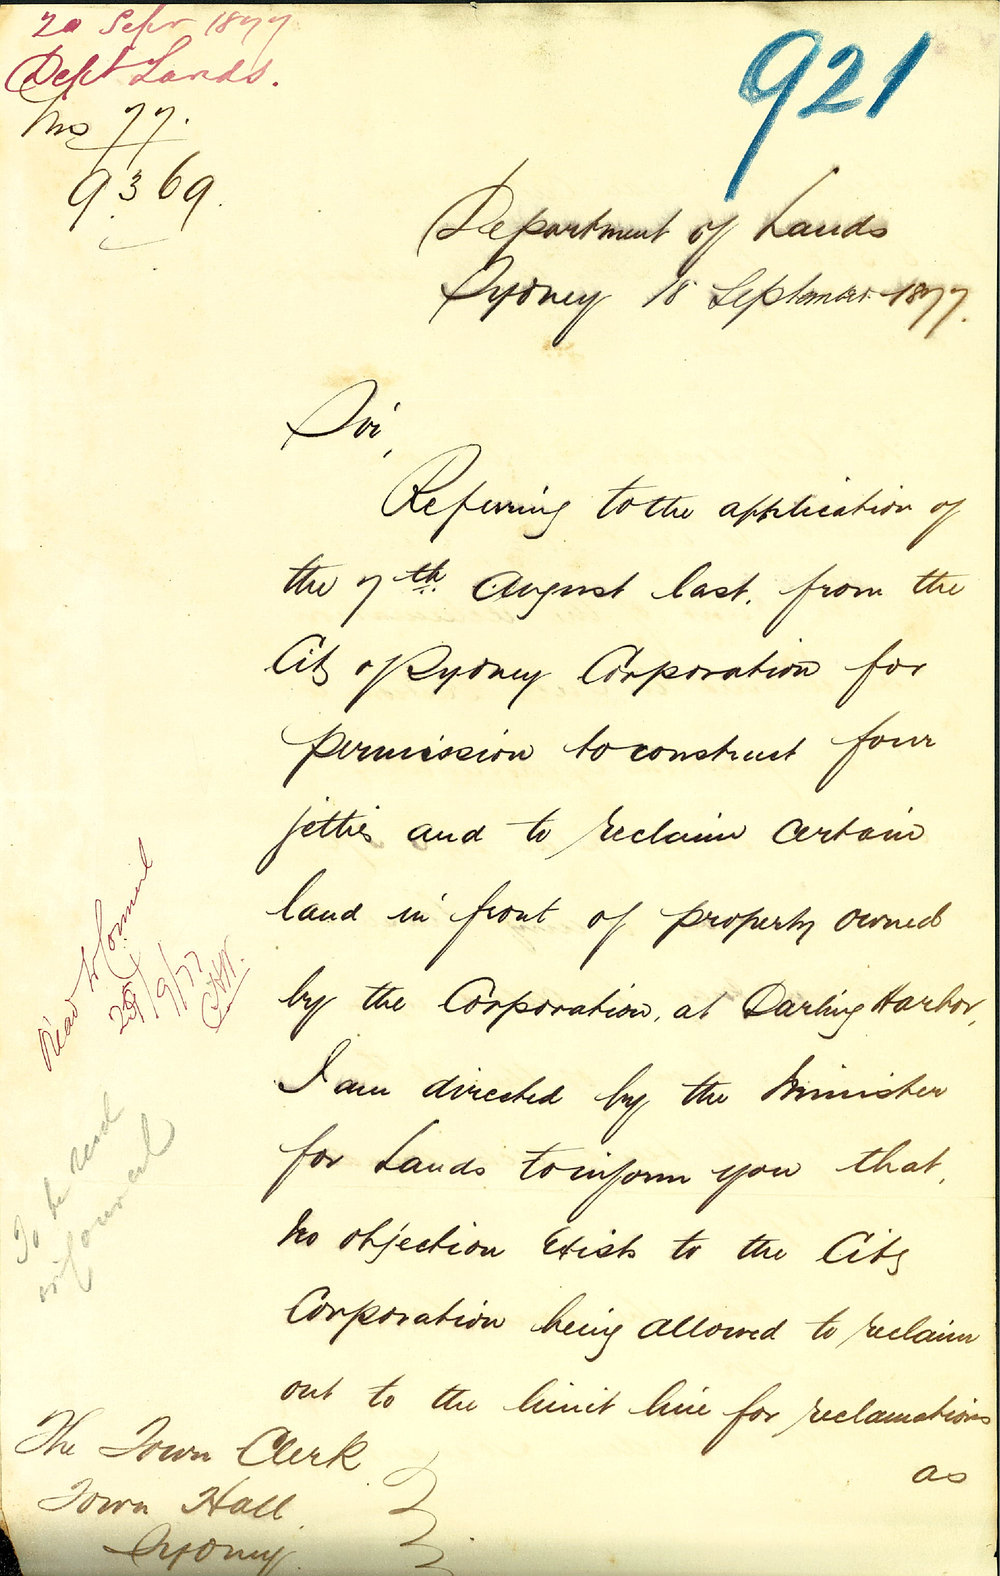 20 Sepr 1877
Dept Lands.
No 77.
9369.
921
Department of Lands
Sydney 18 September 1877.
Sir,
Referring to the application of
the 7th August last, from the
City of Sydney Corporation for
permission to construct four
jetties and to reclaim certain
land in front of property owned
by the Corporation, at Darling Harbor,
I am directed by the Minister
for Lands to inform you that,
no objection exists to the City
Corporation being allowed to reclaim
out to the limit line for reclamations
as
Read to Council
25/9/77
To be read
in Council
The Town Clerk
Town Hall
Sydney